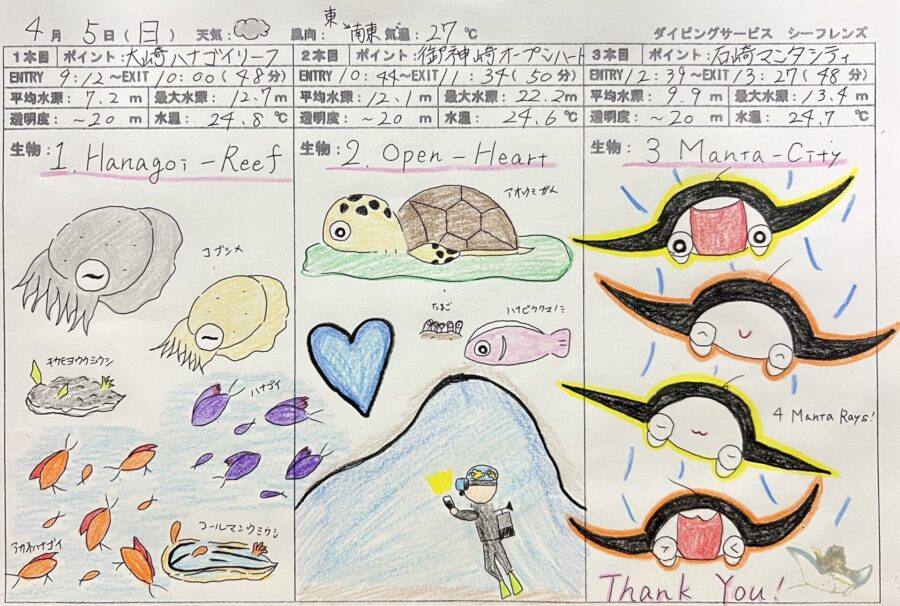 4月 5日(日) 天気: 風向: 東~南東 気温: 27℃ ダイビングサービス シーフレンズ
1本目 ポイント: 大崎ハナゴイリーフ
ENTRY 9:12 ~EXIT 10:00 (48分)
平均水深: 7.2 m 最大水深: 12.7 m
透明度: ~20 m 水温: 24.8 ℃
生物: 1. Hanagoi-Reef
コブシメ
キカモヨウウミウシ
ハナゴイ
アカネハナゴイ
コールマンウミウシ
2本目 ポイント: 御神崎オープンハート
ENTRY 10:44 ~EXIT 11:34 (50分)
平均水深: 12.1 m 最大水深: 22.2 m
透明度: ~20 m 水温: 24.6 ℃
生物: 2. Open-Heart
アオウミガメ
たまご
ハナビラクマノミ
3本目 ポイント: 石崎マンタシティ
ENTRY 12:39 ~EXIT 13:27 (48分)
平均水深: 9.9 m 最大水深: 13.4 m
透明度: ~20 m 水温: 24.7 ℃
生物: 3 Manta-City
4 Manta Rays!
Thank You!